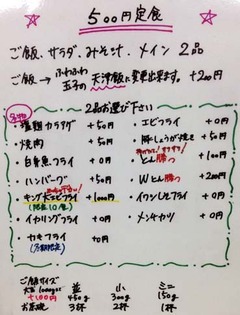 500円定食
ご飯、サラダ、みそ汁、メイン2品
ご飯 → ふわふわ玉子の天津飯に変更出来ます。+200円
2品お選び下さい
塩麹カラアゲ +50円
焼肉 +50円
白身魚フライ +0円
ハンバーグ +50円
キング大エビフライ +1000円
(限定10食)
イカリングフライ +0円
カキフライ +0円
(冬期限定)
・エビフライ +0円
・豚しょうが焼き +50円
・とん勝つ +100円
・Wとん勝つ +200円
・イワシしそフライ +0円
・メンチカツ +0円
ご飯サイズ 並 小 ミニ
+100円 450g 300g 150g
お茶碗 3杯 2杯 1杯